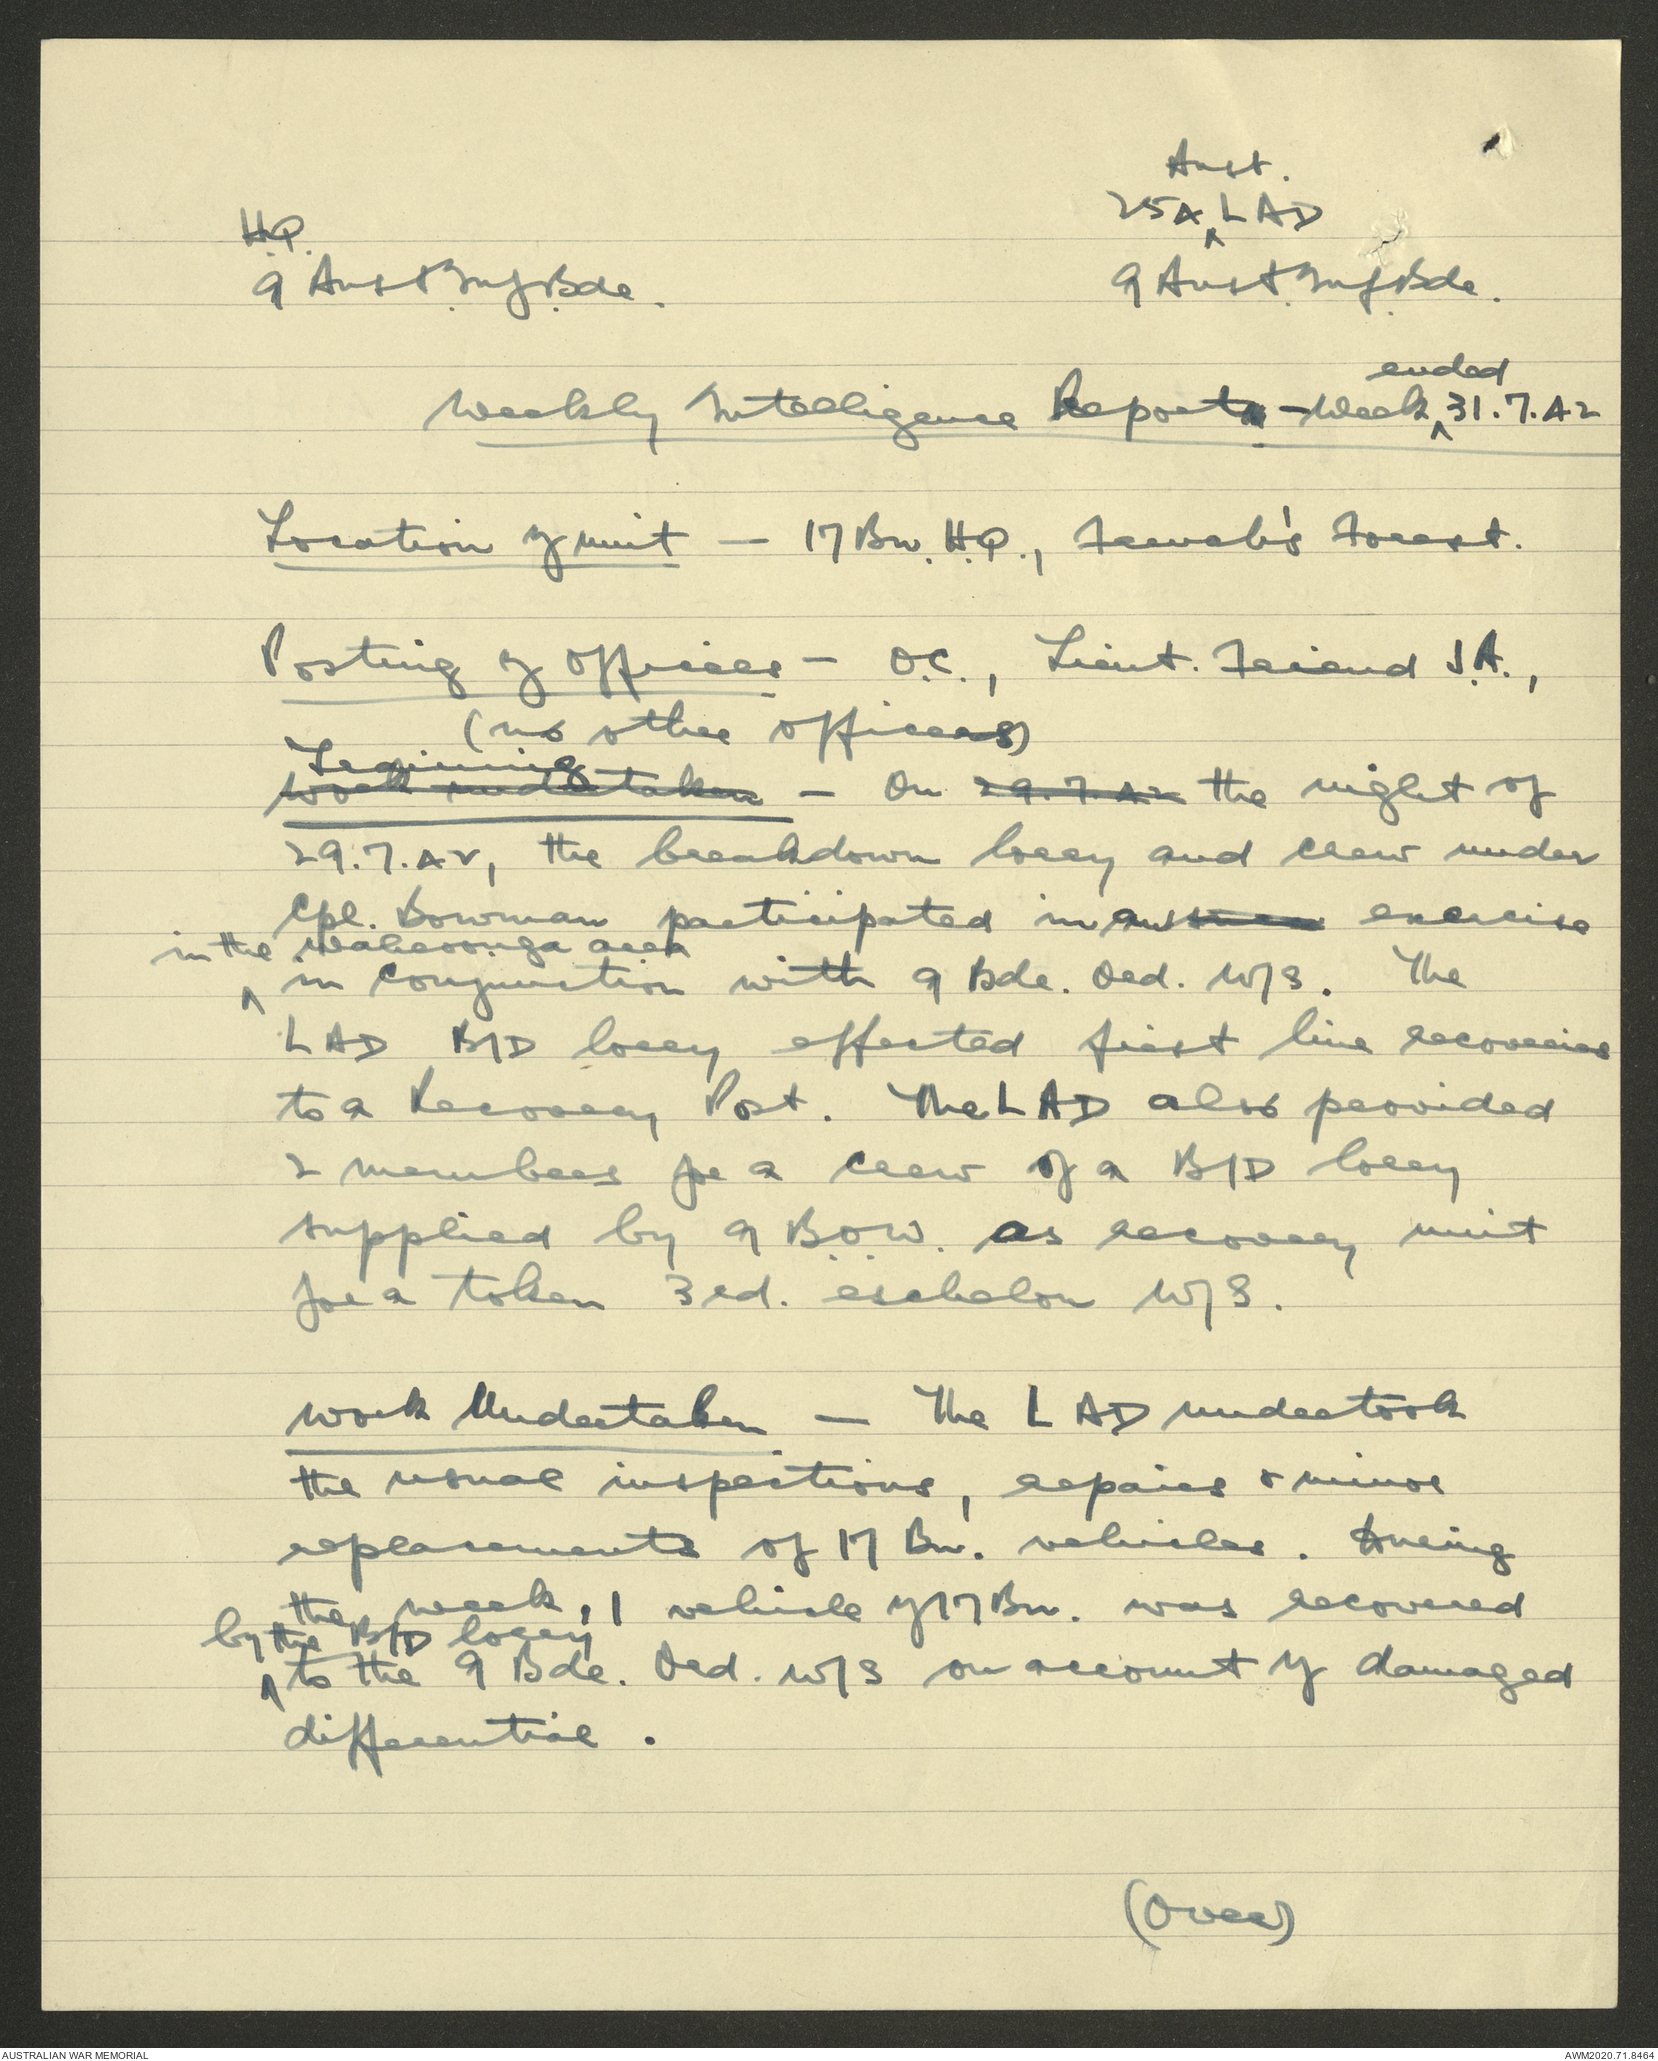 Aust.
25A ^ LAD
H.Q.
9 Aust. Inf. Bde.
9 Aust. Inf. Bde.
ended
Weekly Intelligence Report - Week ^ 31.7.42
Location of unit - 17 Bn. H.Q., French's Forest.
Posting of Officers - O.C., Lieut. Friend J.A.,
(no other officers)
Training
Work undertaken - On 29.7.42 the night of
29.7.42, the breakdown lorry and crew under
Cpl. Bowman participated in an exercise
in the Wahroonga area
^ in conjunction with 9 Bde. Ord. W/S. The
LAD B/D lorry effected first line recoveries
to a Recovery Post. The LAD also provided
2 members for a crew of a B/D lorry
supplied by 9 B.O.W. as recovery unit
for a token 3rd. eschelon W/S.
Work Undertaken - The LAD undertook
the usual inspections, repairs & minor
replacements of 17 Bn. vehicles. During
the week, 1 vehicle of 17 Bn. was recovered
by the B/D lorry
^ to the 9 Bde. Ord. W/S on account of damaged
differential.
(Over)
AUSTRALIAN WAR MEMORIAL
AWM2020.71.8464